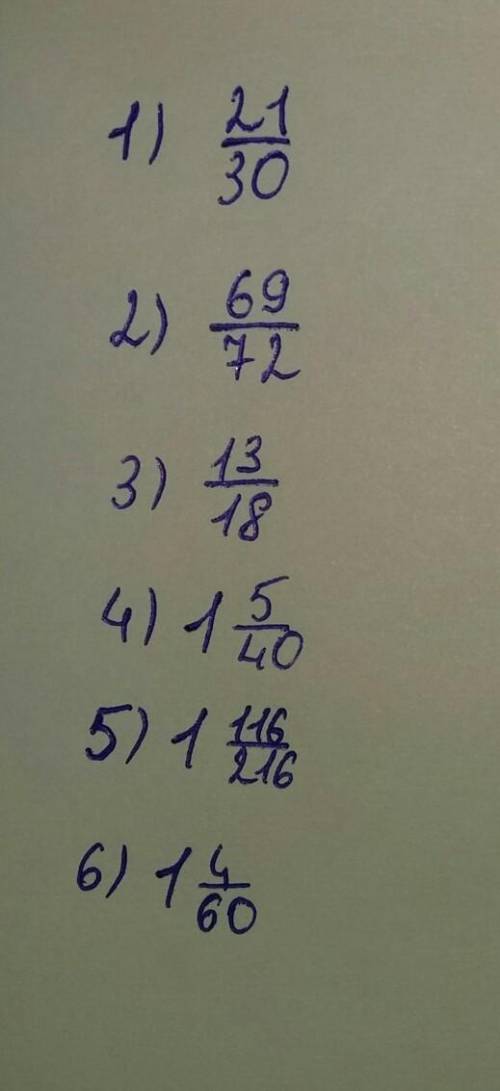 1) 21/30
2) 69/72
3) 13/18
4) 1 5/40
5) 1 116/216
6) 1 4/60